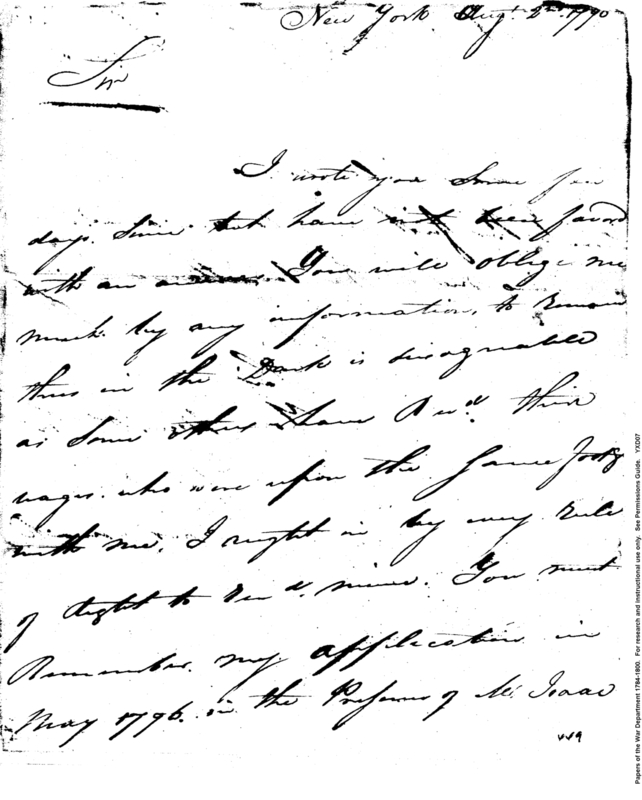 New York Augt. 2nd 1790
Sir
I wrote you Some few
days. Since but have not been favord
with an answer. You will oblige me
much. by any information, to remain
thus in the Dark is disagreable
as Some others have Recd. their
wages. who were upon the Same footg
with me. I ought in by every Rule
of Right to recd. mine. You must
Remember. my application in
May 1796. in the Presence of Mr. Isaac
Papers of the War Department 1784-1800. For research and instructional use only. See Permissions Guide. YX007